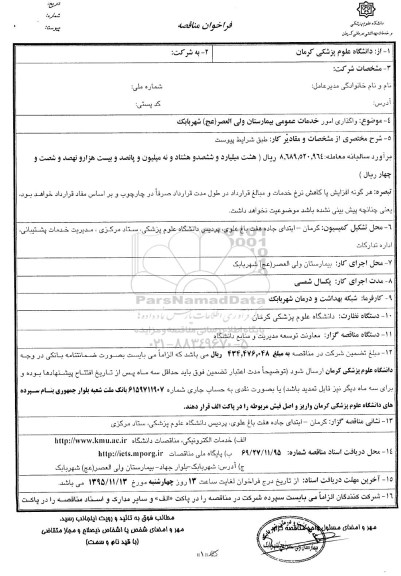 تاریخ:
شماره:
پیوست:
فراخوان مناقصه
دانشگاه علوم پزشکی
و خدمات بهداشتی درمانی کرمان
۱- از: دانشگاه علوم پزشکی کرمان
۲- به شرکت:
۳- مشخصات شرکت:
نام و نام خانوادگی مدیرعامل:
شماره ملی:
آدرس:
کد پستی:
۴- موضوع: واگذاری امور خدمات عمومی بیمارستان ولی العصر(عج) شهربابک
۵- شرح مختصری از مشخصات و مقادیر کار: طبق شرایط پیوست
برآورد سالیانه معامله: ۸,۶۸۹,۵۲۰,۹۶۴ ریال ( هشت میلیارد و ششصدو هشتاد و نه میلیون و پانصد و بیست هزارو نهصد و شصت و
چهار ریال )
تبصره: هر گونه افزایش یا کاهش نرخ خدمات و مبالغ قرارداد در طول مدت قرارداد صرفاً در چارچوب و بر اساس مفاد قرارداد خواهد بود،
یعنی چنانچه پیش بینی نشده باشد موضوعیت نخواهد داشت.
۶- محل تشکیل کمیسیون: کرمان – ابتدای جاده هفت باغ علوی، پردیس دانشگاه علوم پزشکی، ستاد مرکزی ، مدیریت خدمات پشتیبانی،
اداره تدارکات
۷- محل اجرای کار: بیمارستان ولی العصر(عج) شهربابک
۸- مدت اجرای کار: یکسال شمسی
۹- کارفرما: شبکه بهداشت و درمان شهربابک
ParsNamadData
۱۰- دستگاه نظارت: دانشگاه علوم پزشکی کرمان
۱۱- دستگاه مناقصه گزار: معاونت توسعه مدیریت و منابع دانشگاه
۰۲۱-۸۸۳۴۹۶۷۰-۵
۱۲- مبلغ تضمین شرکت در مناقصه به مبلغ ۴۳۴,۴۷۶,۰۴۸ ریال می باشد که الزاماً می بایست بصورت ضمانتنامه بانکی در وجه
دانشگاه علوم پزشکی کرمان ارسال شود (توضیحاً مدت اعتبار تضمین فوق باید حداقل سه ماه پس از تاریخ افتتاح پیشنهادها بوده و
برای سه ماه دیگر نیز قابل تمدید باشد) یا بصورت نقدی به حساب جاری شماره ۶۱۵۷۷۱۱۹۰۷ بانک ملت شعبه بلوار جمهوری بنام سپرده
های دانشگاه علوم پزشکی کرمان واریز و اصل فیش مربوطه را در پاکت الف قرار دهند.
۱۳- نشانی مناقصه گزار: کرمان – ابتدای جاده هفت باغ علوی، پردیس دانشگاه علوم پزشکی، ستاد مرکزی
۱۴- محل دریافت اسناد مناقصه شماره: ۶۹/۲۷/۱۱/۹۵
الف) خدمات الکترونیکی، مناقصات دانشگاه http://www.kmu.ac.ir
ب) پایگاه ملی مناقصات http://iets.mporg.ir
ج) آدرس: شهربابک-بلوار جهاد- بیمارستان ولی العصر(عج) شهربابک
۱۵- آخرین مهلت دریافت اسناد: از تاریخ درج فراخوان لغایت ساعت ۱۳ روز چهارشنبه مورخ ۱۳۹۵/۱۱/۱۳
۱۶- شرکت کنندگان الزاماً می بایست سپرده شرکت در مناقصه را در پاکت «الف» و سایر مدارک و اسناد مناقصه را در پاکت
مهر و امضای مسئول
مطالب فوق به تائید و رویت اینجانب رسید.
مهر و امضای شخص یا اشخاص ذیصلاح و مجاز متقاضی
(با قید نام و سمت)